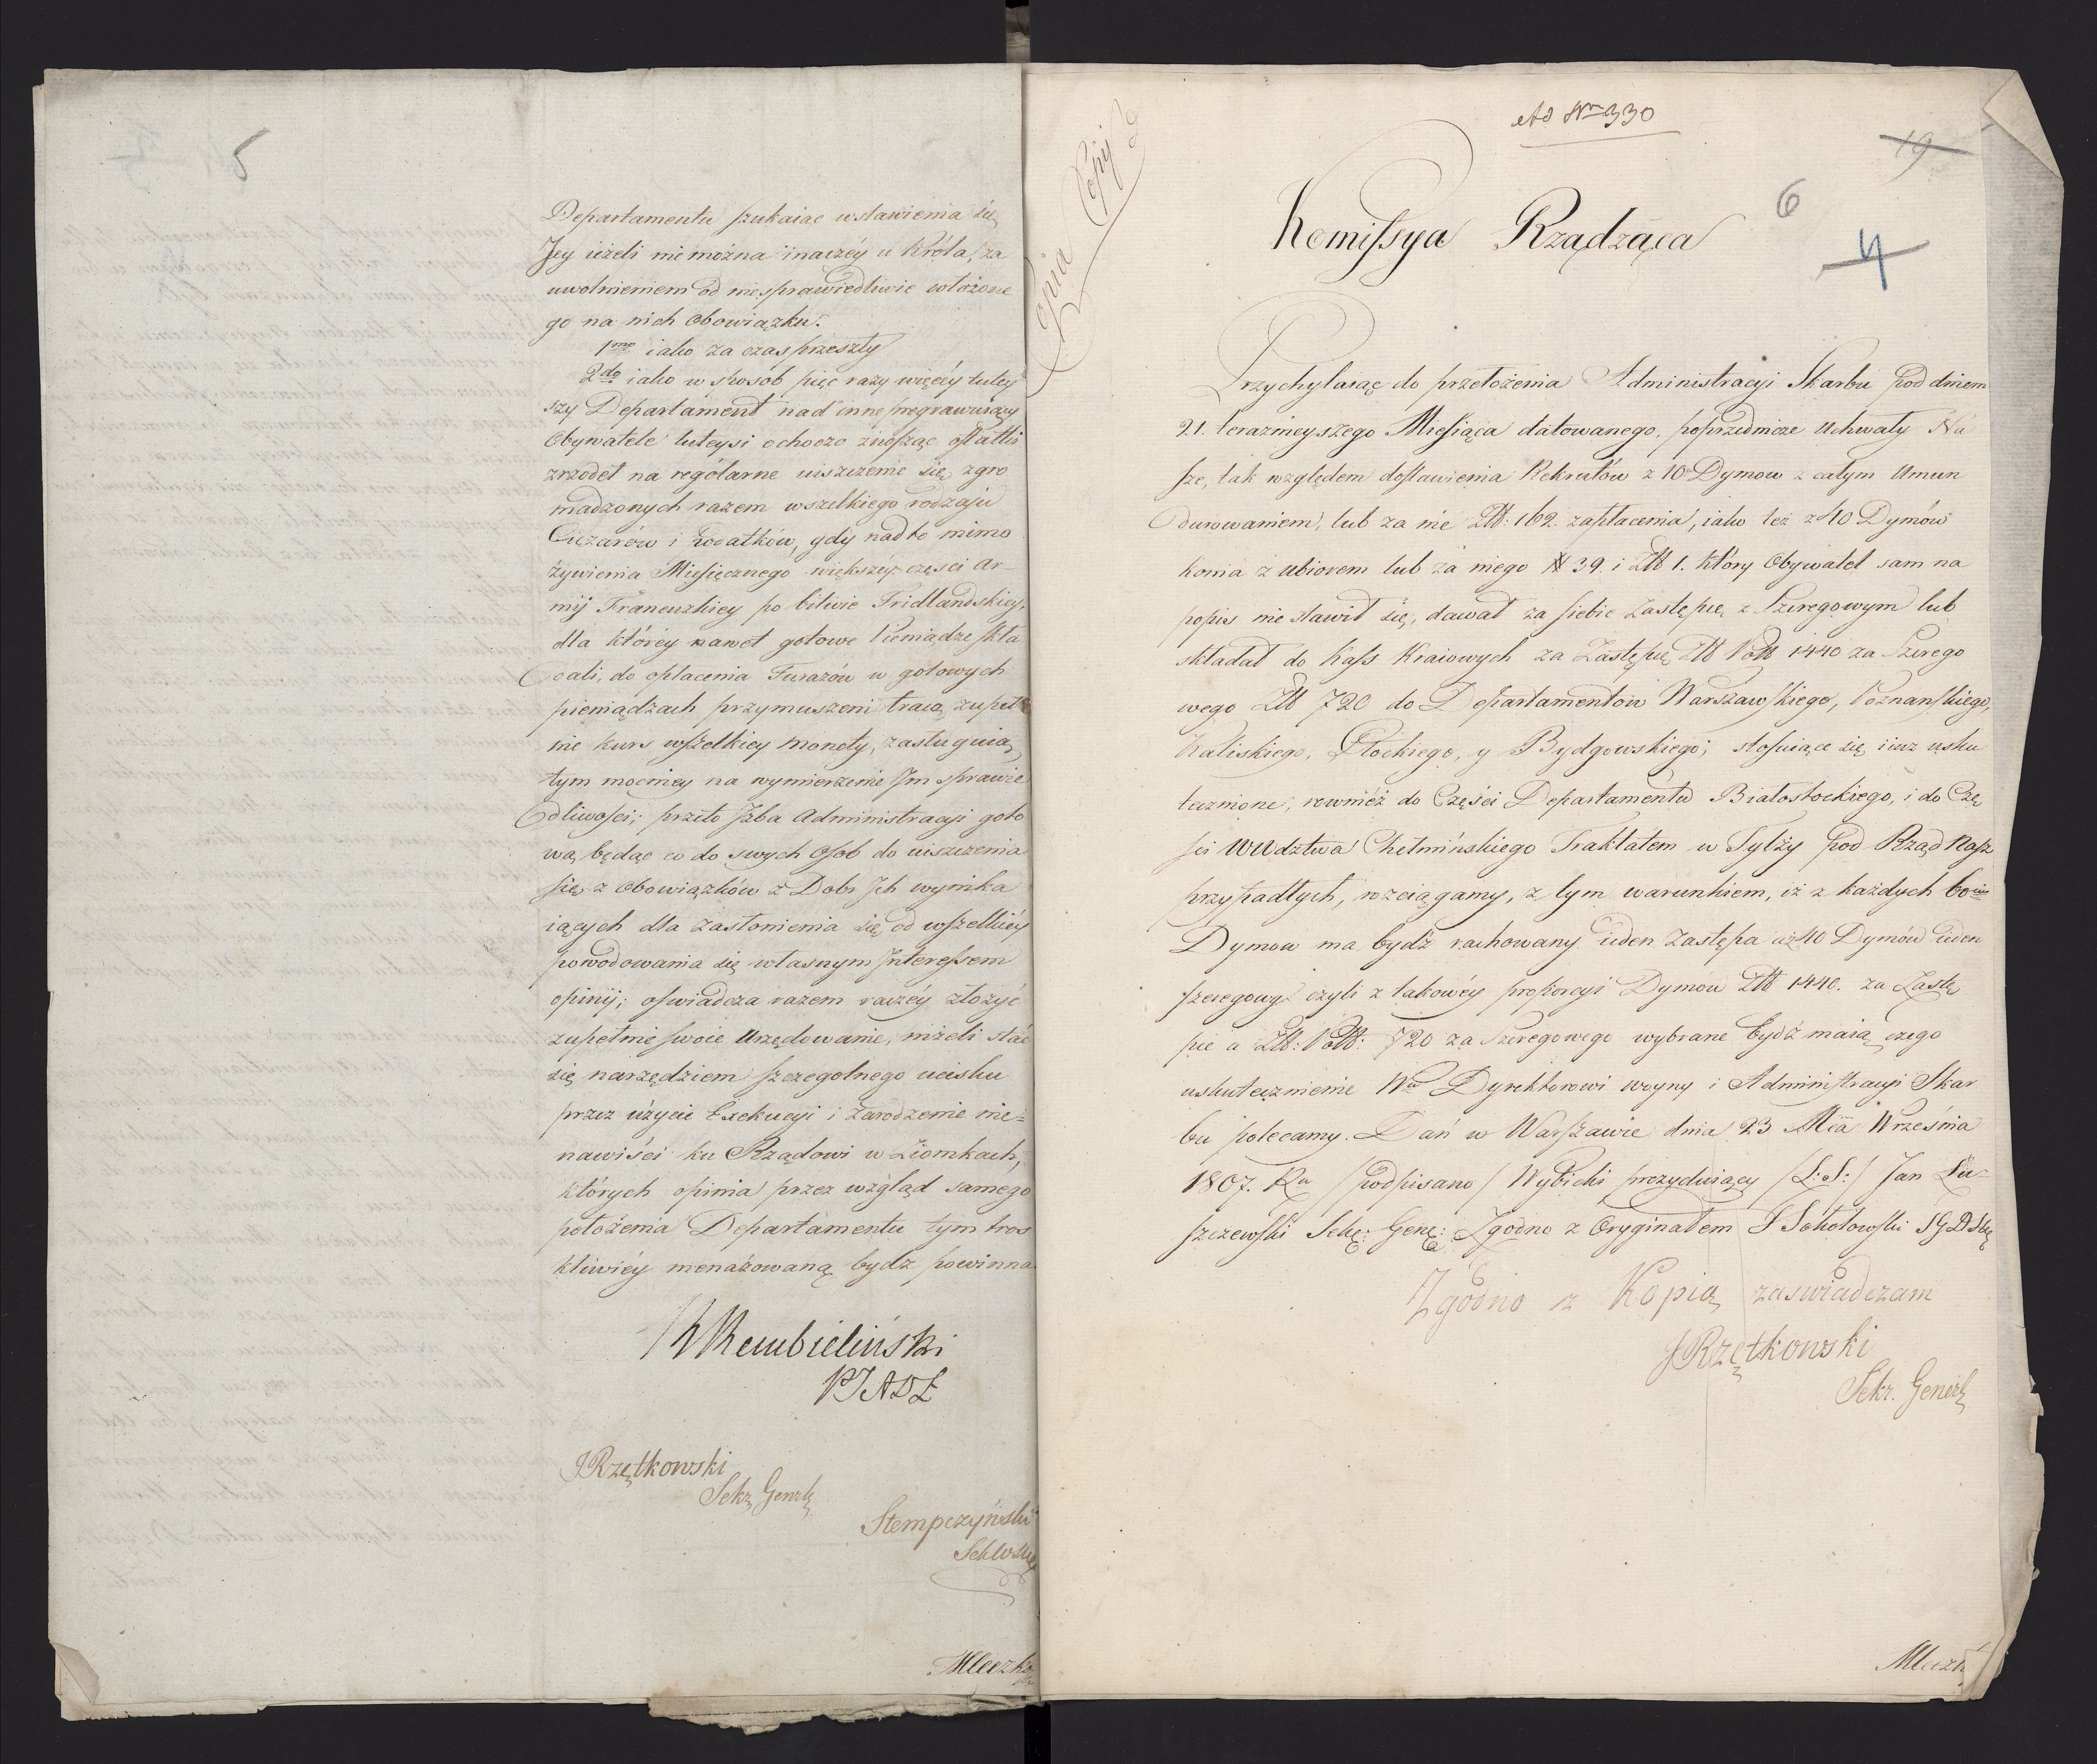 5
Departamentu szukaiąc wstawienia się
Jey ieżeli nie można inaczéy u Króla, za
uwolnieniem od niesprawiedliwie włożone
go na nich Obowiązku.
1mo iako za czas przeszły
2do iako w sposób pięc razy więcéy tutey
szy Departament nad inne pregrawuiący
Obywatele tuteysi ochoczo znosząc ostatki
zrzodeł na rególarne uiszczenie się zgro
madzonych razem wszelkiego rodzaju
Ciężarów i Podatków, gdy nadto mimo
żywienia Miesięcznego większéy częsci Ar-
mij Francuzkiey po bitwie Fridlandskiey,
dla któréy nawet gotowe Pieniądze skła
dali, do opłacenia Furażów w gotowych
pieniądzach przymuszeni tracą zupeł
nie kurs wszelkiey monety, zasługuią
tym mocniey na wymierzenie Jm sprawie
dliwosci; przeto Jzba Administracyi goto
wa będąc co do swych Osob do uiszczenia
się z Obowiązków z Dobr Jch wynika
iących dla zasłonienia się od wszelkiéy
powodowania się własnym Jnteressem
opinij; oswiadcza razem raczéy złożyć
zupełnie swoie Urzędowanie, niżeli stać
się narzędziem szczegolnego ucisku
przez użycie Exekucyi i Zarodzenie nie=
nawiści ku Rządowi w Ziomkach,
których opinia przez wzgląd samego
położenia Departamentu tym tros
kliwiéy menażowaną bydz powinna
Rembieliński
PJADŁ
JRzętkowski
Sekr Genrl
Stempczyński
Mleczko
Kopia Kopij
Ad Nro 330
19
6
4
Komissya Rządząca
Przychylaiąc do przełożenia Administracyi Skarbu pod dniem
21. terazmieyszego Miesiąca datowanego, poprzednicze Uchwały Na
sze, tak względem dostawienia Rekrutów z 10 Dymow z całym Umun
durowaniem, lub za nie Złł: 162. zapłacenia, iako też z 40 Dymów
konia z ubiorem lub za niego # 39. i Złł 1. który Obywatel sam na
popis nie stawił się, dawał za siebie Zastępcę z Szeregowym lub
składał do Kass Kraiowych za Zastępcę Złł Poll 1440 za Szerego
wego Złł 720 do Departamentow Warszawskiego, Poznanskiego,
Kaliskiego, Płockiego, y Bydgowskiego; stosuiące się i iuz usku
tecznione, rownież do Części Departamentu Białostockiego, i do Czę
sci Wwdztwa Chełmińskiego Traktatem w Tylży pod Rząd Nasz
przypadłych, rozciągamy, z tym warunkiem, iż z każdych 60ciu
Dymow ma bydź rachowany ieden Zastępca a z 40 Dymów ieden
szeregowy czyli z takowéy proporcyi Dymow Złł 1440. za Zastę
pcę a Złł: Poll: 720 za Szeregowego wybrane bydź maią czego
uskutecznienie Wu Dyrektorowi woyny i Administracyi Skar
bu polecamy. Dań w Warszawie dnia 23 Mca Września
1807. Ru /podpisano/ Wybicki prezyduiący /L:S:/ Jan Łu-
szczewski Sekr: Gene: Zgodno z Oryginałem F Sokołowski SGDSkę
Zgodno z Kopią zaswiadczam
JRzętkowski
Sekr. Generl